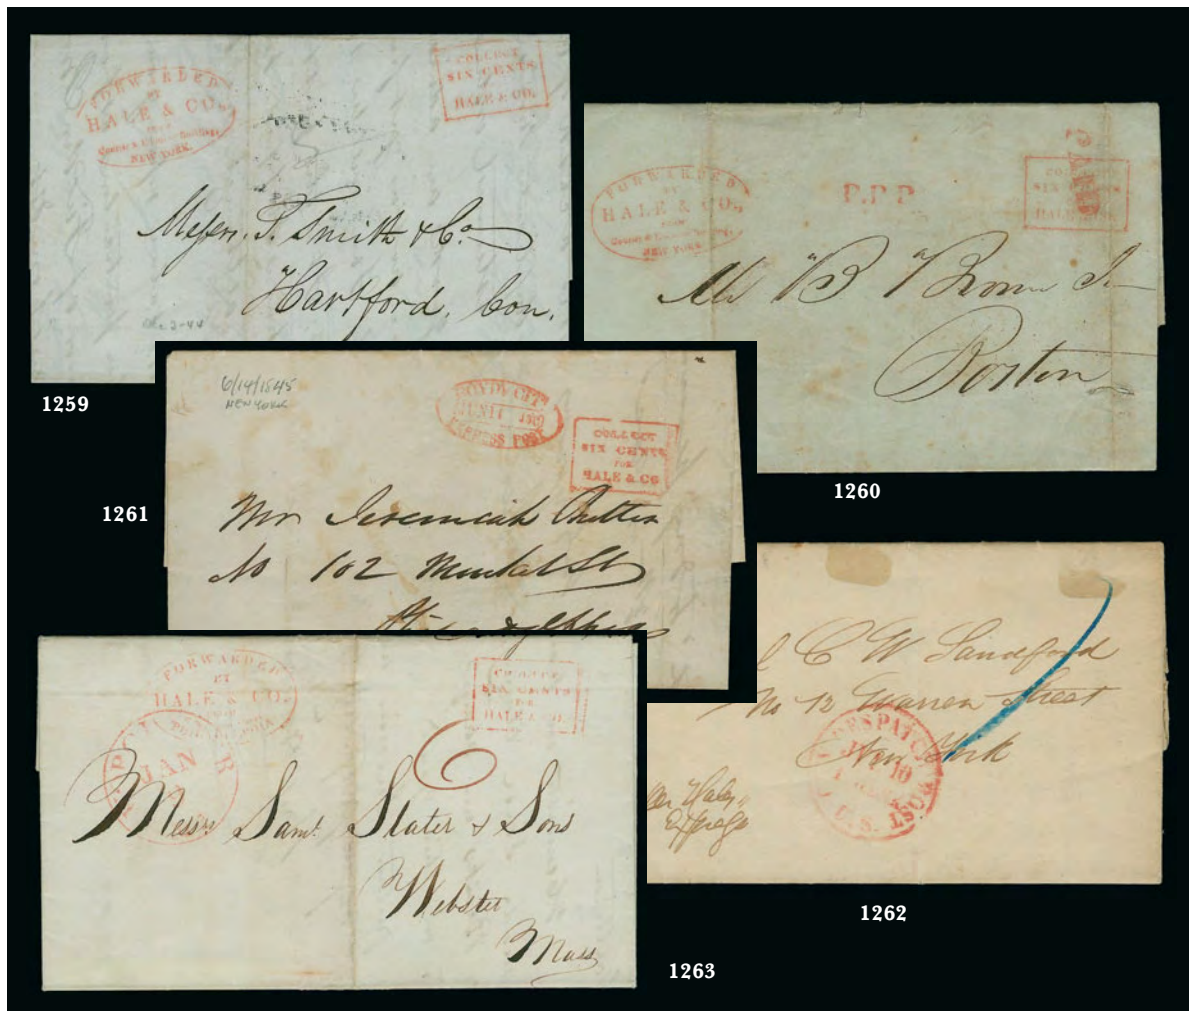 FORWARDED
BY
HALE & CO.
FROM
NEW YORK.
COLLECT
SIX CENTS
FOR
HALE & CO.
Messrs. T. Smith & Co
Hartford, Con.
1259
FORWARDED
BY
HALE & CO.
FROM
NEW YORK
P.P.P
PAID
COLLECT
SIX CENTS
HALE & CO.
Mr B Brown Jr
Boston
1260
6/14/1845
NEW YORK
BOYD'S CITY
JUN 11
EXPRESS POST
COLLECT
SIX CENTS
FOR
HALE & CO
Mr Jeremiah
No 102 Market St
1261
C W Sandford
No 12 Warren Street
New York
DESPATCH
10
U.S. POST
Hales
Express
1262
FORWARDED
BY
HALE & CO.
FROM
JAN
COLLECT
SIX CENTS
FOR
HALE & CO.
6
Messrs Saml Slater & Sons
Webster
Mass
1263